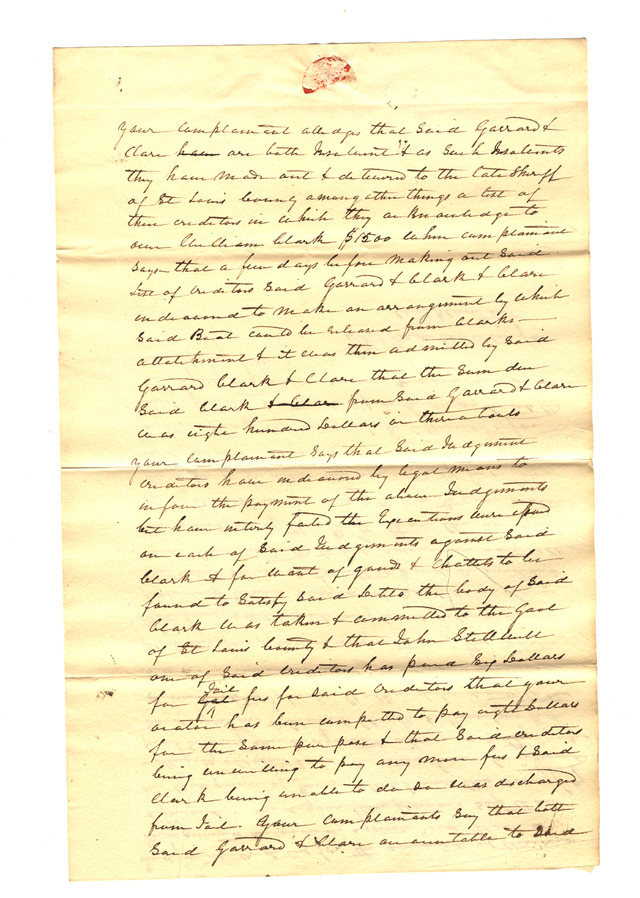 Your complainant alledges that Said Garrard &
Clare have are both Insolvent & as Such Insolvents
they have made out & delivered to the late Sheriff
of St Louis County among other things a list of
their creditors in which they acknowledge to
owe William Clark $1500 when complainant
Says that a few days before making out Said
List of Creditors Said Garrard & Clark & Clare
indeavored to make an arrangement by which
Said Boat could be released from Clarks
attatchment & it was then admitted by Said
Garrard Clark & Clare that the Sum due
Said Clark & Clare from Said Garrard & Clare
was eight hundred Dollars or thereabouts
Your complainant Says that Said Judgement
creditors have indeavored by legal means to
inforce the payment of the above Judgements
but have intirely failed the Executions were issued
on each of Said Judgements against Said
Clark & for want of goods & Chattels to be
found to Satisfy Said the body of Said
Clark was taken & committed to the Gaol
of St Louis County & that John Stillwell
one of Said Creditors has paid Six Dollars
for Gal Jail fees for Said Creditors that your
orator has been compelled to pay eight Dollars
for the Same purpose & that Said creditors
being unwilling to pay any more fees & Said
Clark being unable to do So was discharged
from Jail. Your complainants Say that both
Said Garrard & Clare are unable to